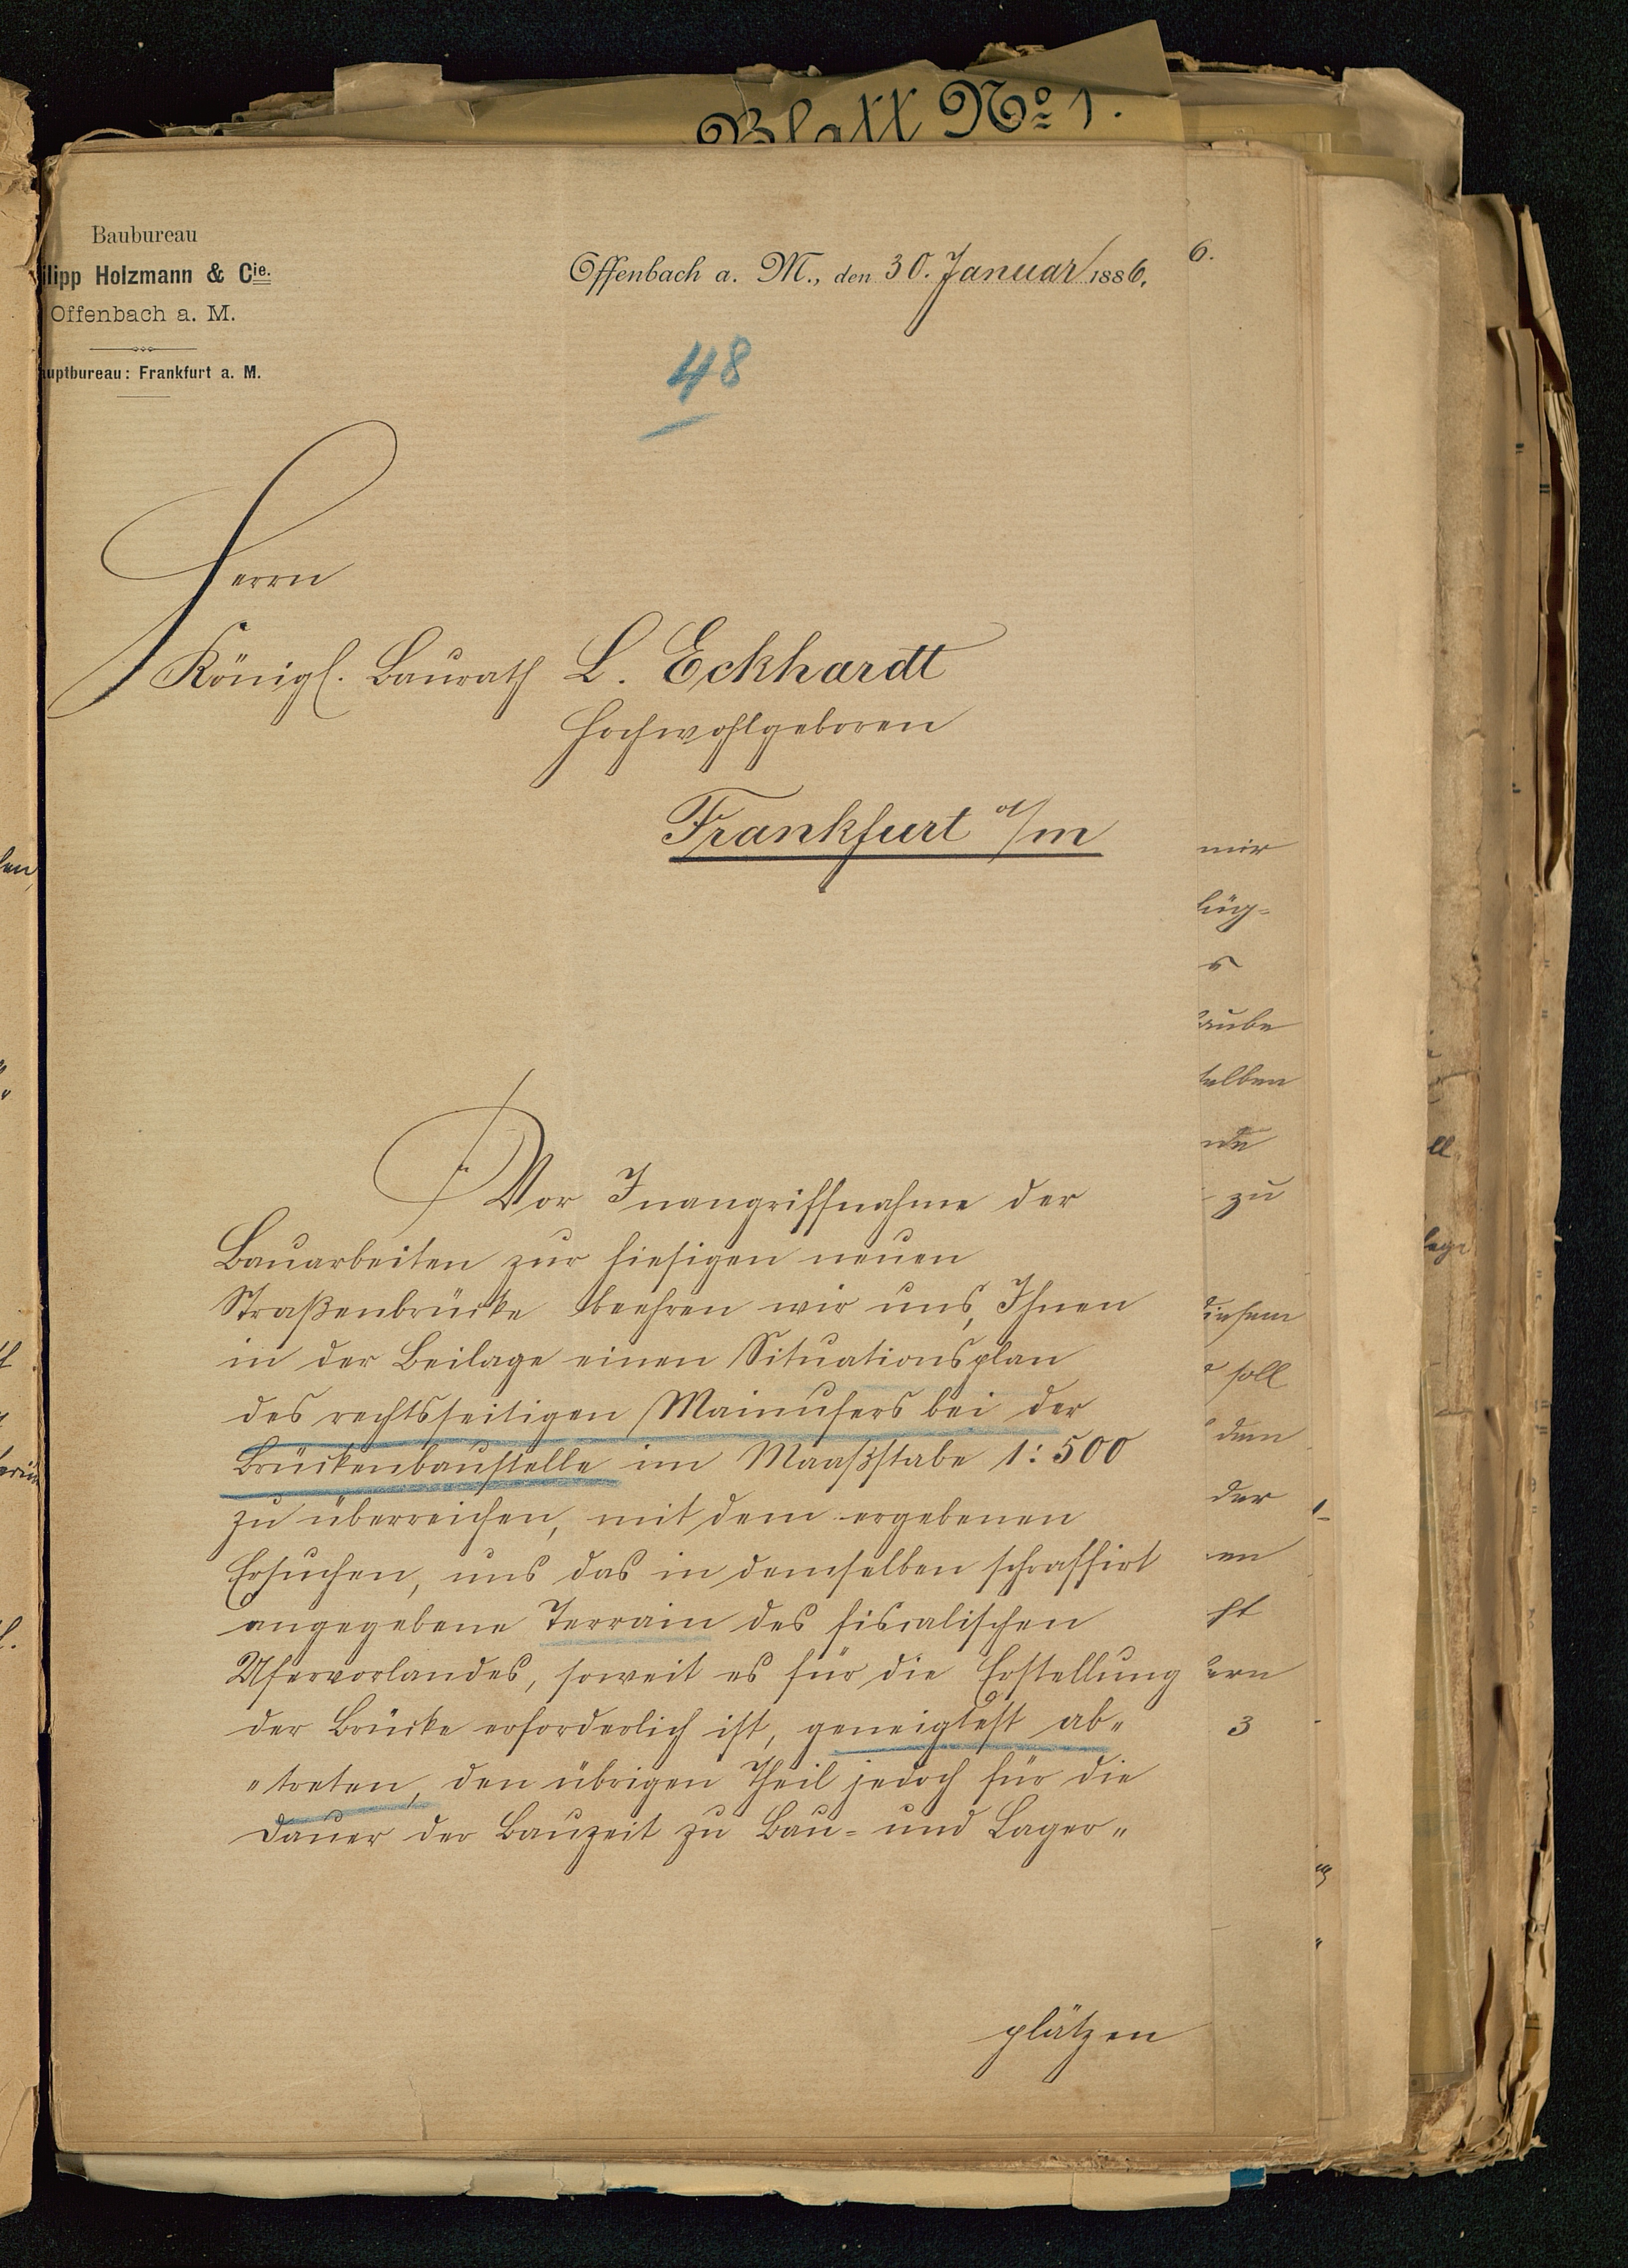 Blatt No 1.
Baubureau
ilipp Holzmann & Cie.
Offenbach a. M.
auptbureau: Frankfurt a. M.
Offenbach a. M., den 30. Januar 1886.
6.
48
Herrn
Königl. Baurath L. Eckhardt
Hochwohlgeboren
Frankfurt a/m
Vor Inangriffnahme der
Bauarbeiten zur hiesigen neuen
Straßenbrücke beehren wir uns, Ihnen
in der Beilage einen Situationsplan
des rechtsseitigen Mainufers bei der
Brückenbaustelle im Maaßstabe 1:500
zu überreichen, mit dem ergebenen
Ersuchen, uns das in demselben schraffirt
angegebene Terrain des fiscalischen
Ufervorlandes, soweit es für die Erstellung
der Brücke erforderlich ist, geneigtest ab„
„treten, den übrigen Theil jedoch für die
Dauer der Bauzeit zu Bau- und Lager„
plätzen
mir
aube
selben
zu
diesem
soll
dem
der
en
ht
ern
3